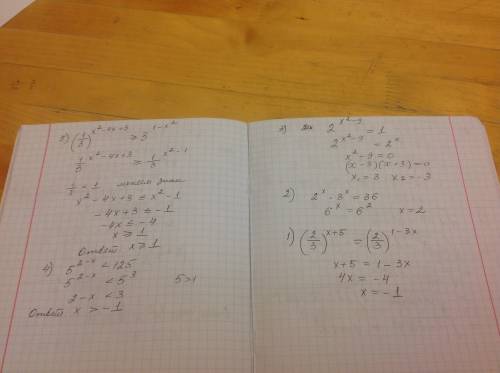 5) (1/3)^(x²-4x+3) ≥ 3^(1-x²)
1/3^(x²-4x+3) ≥ 1/3^(x²-1)
1/3 < 1 меняем знак
x² - 4x + 3 ≤ x² - 1
-4x + 3 ≤ -1
-4x ≤ -4
x ≥ 1
Ответ: x ≥ 1
4) 5^(2-x) < 125
5^(2-x) < 5³ 5>1
2-x < 3
Ответ. x > -1
3) 2^(x²-9) = 1
2^(x²-9) = 2°
x² - 9 = 0
(x-3)(x+3)=0
x₁ = 3 x₂ = -3
2) 2^x · 3^x = 36
6^x = 6² x = 2
1) (2/3)^(x+5) = (2/3)^(1-3x)
x+5 = 1-3x
4x = -4
x = -1